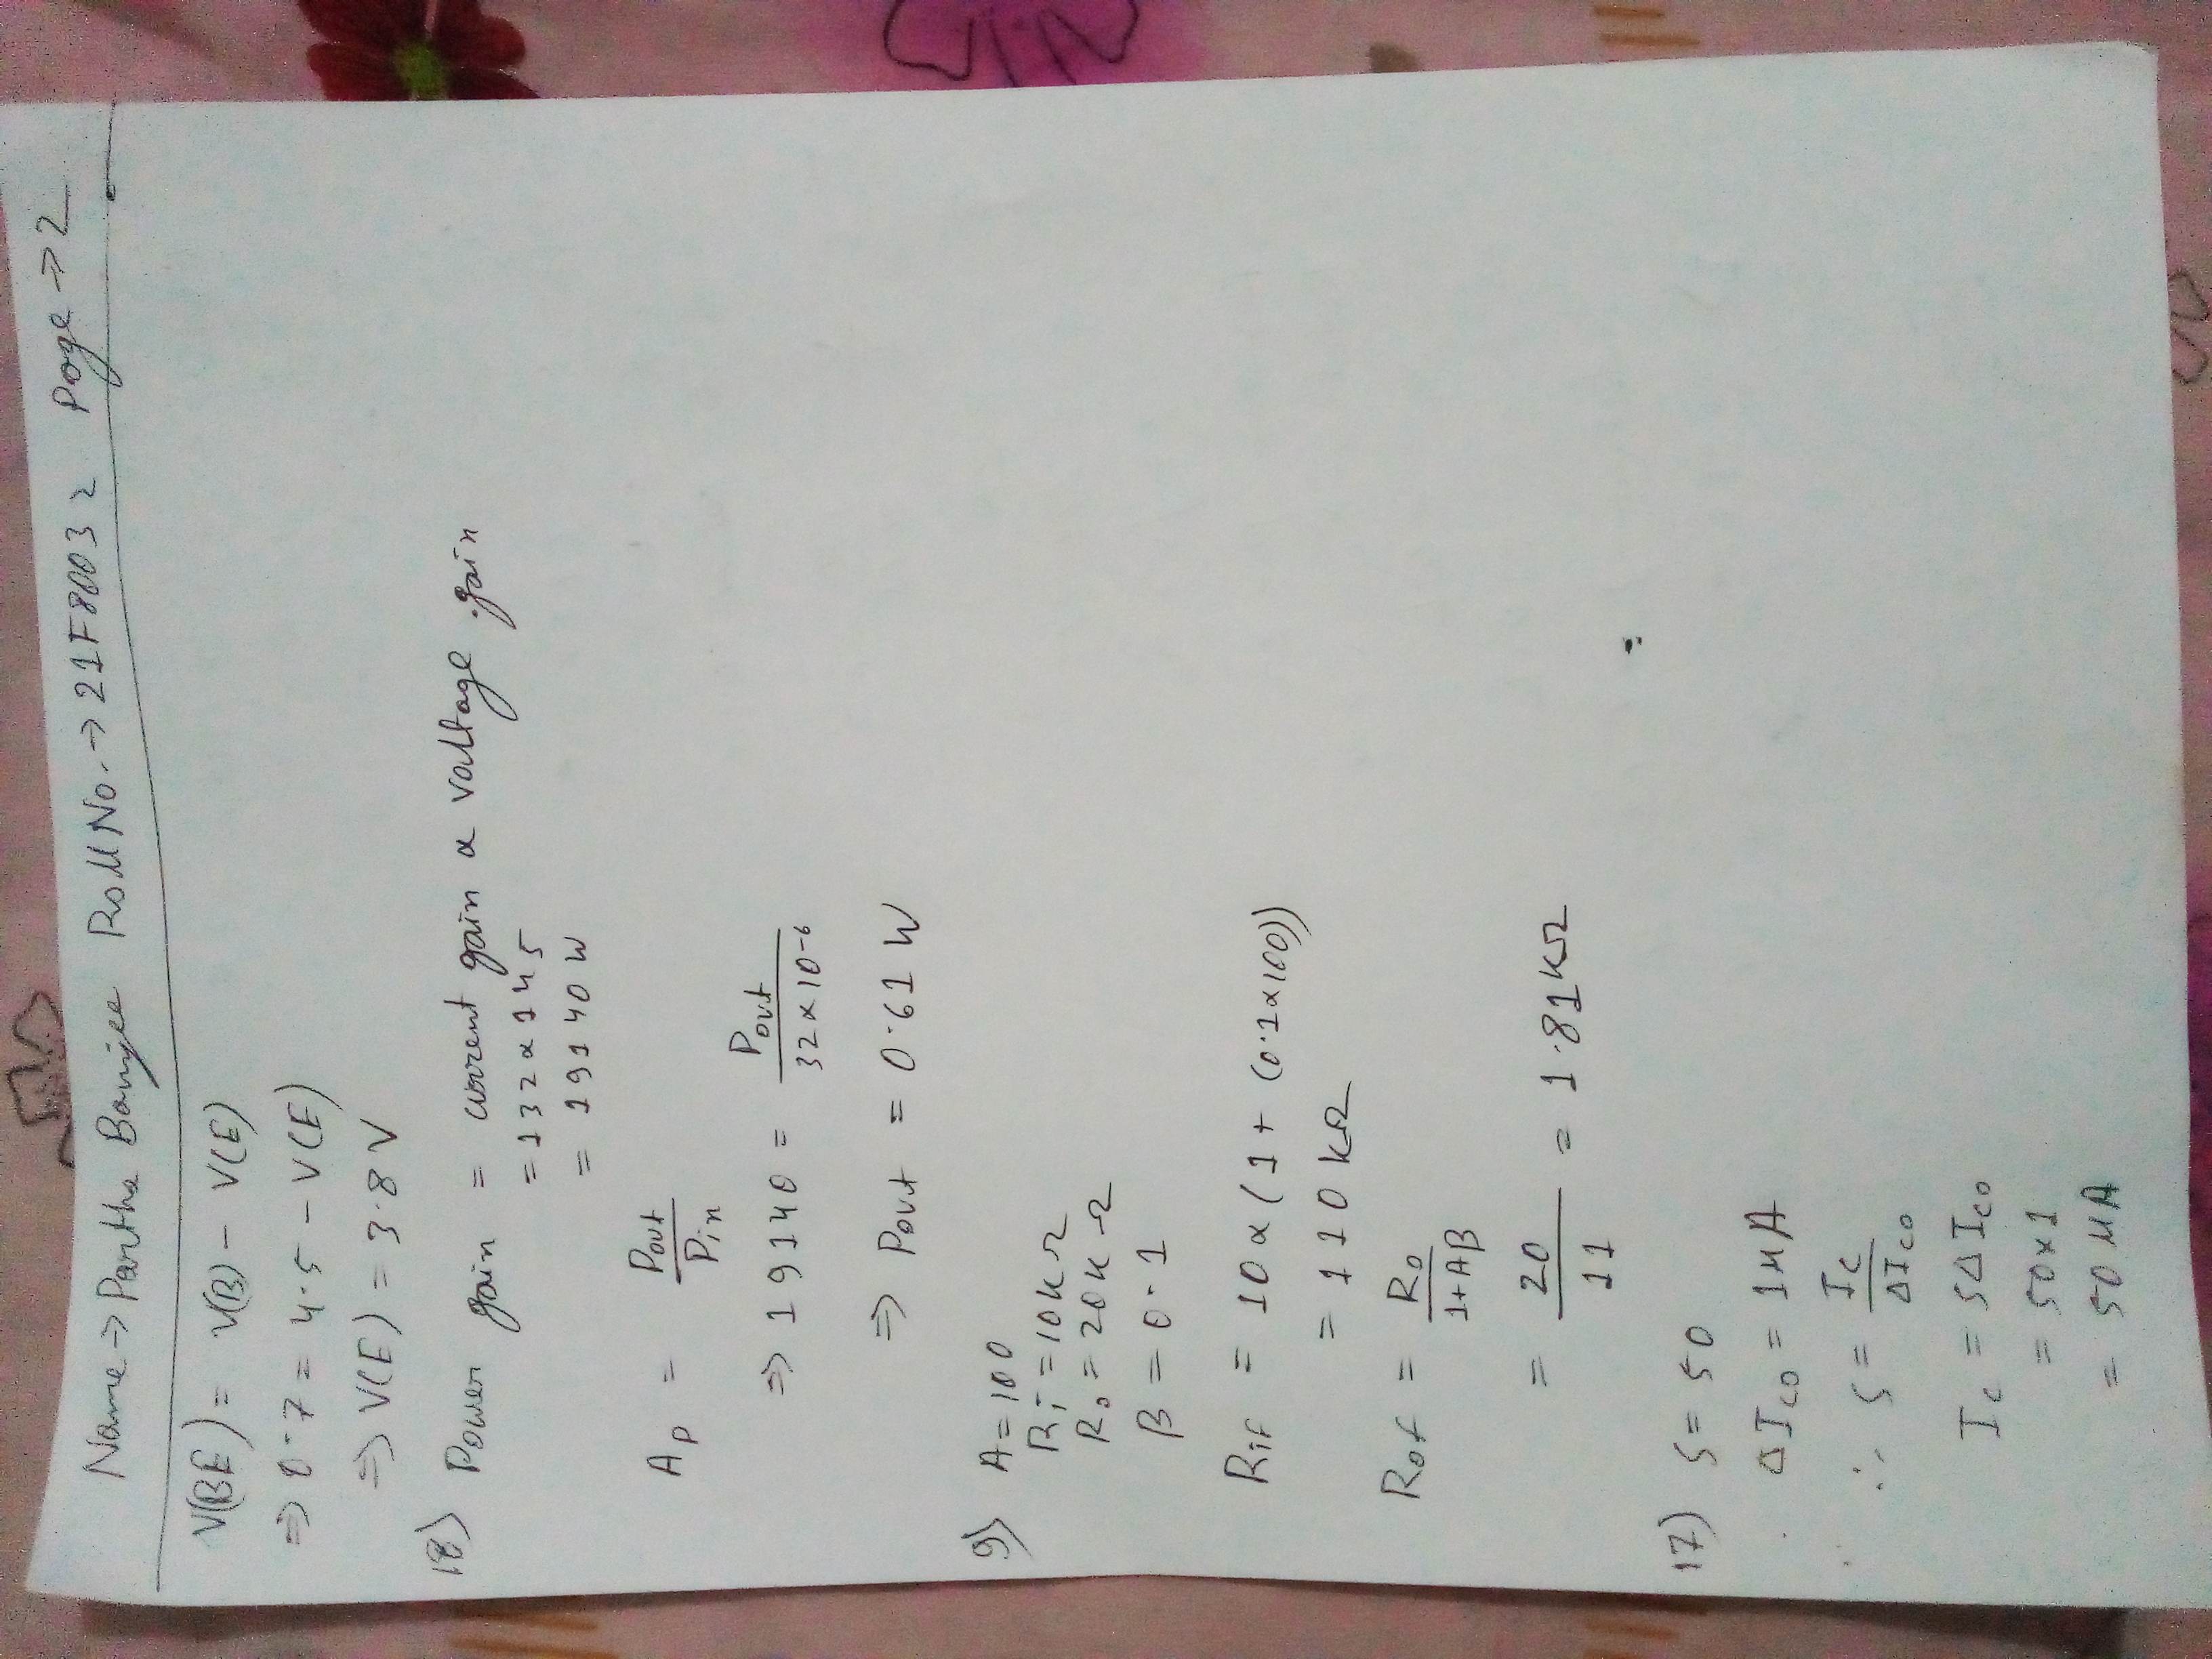 Name → Partha Banrjee Roll No. → 21F80032 Page → 2
V(BE) = V(B) - V(E)
⇒ 0.7 = 4.5 - V(E)
⇒ V(E) = 3.8 V
18) Power gain = current gain × valtage gain
= 132 × 145
= 19140 W
Ap = Pout / Pin
⇒ 19140 = Pout / 32 × 10-6
⇒ Pout = 0.61 W
9) A = 100
Ri = 10K Ω
Ro = 20K Ω
β = 0.1
Rif = 10 × (1 + (0.1 × 100))
= 110 KΩ
Rof = Ro / 1+Aβ
= 20 / 11 = 1.81KΩ
17) S = 50
ΔIco = 1μA
∴ S = Ic / ΔIco
Ic = SΔIco
= 50 × 1
= 50 μA